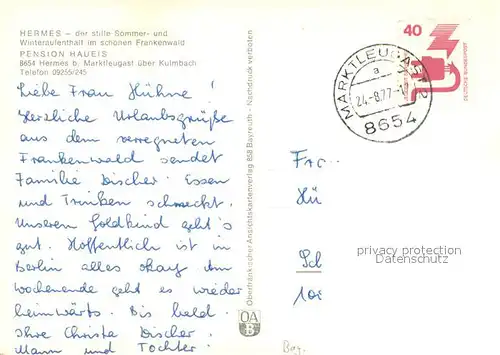 HERMES – der stille Sommer- und
Winteraufenthalt im schönen Frankenwald
PENSION HAUEIS
8654 Hermes b. Marktleugast über Kulmbach
Telefon 09255/245
Liebe Frau Hühne!
Herzliche Urlaubsgrüße
aus dem verregneten
Frankenwald sendet
Familie Discher. Essen
und Trinken schmeckt.
Unseren Goldkind geht's
gut. Hoffentlich ist in
Berlin alles okay. Am
Wochenende geht es wieder
heimwärts. Bis bald.
Ihre Christa Discher.
Mann und Tochter.
Oberfränkischer Ansichtskartenverlag 858 Bayreuth - Nachdruck verboten
OA
B
MARKTLEUGAST 2
a
24.-8.77-17
8654
40
DEUTSCHE BUNDESPOST
Hü
privacy protection
Datenschutz